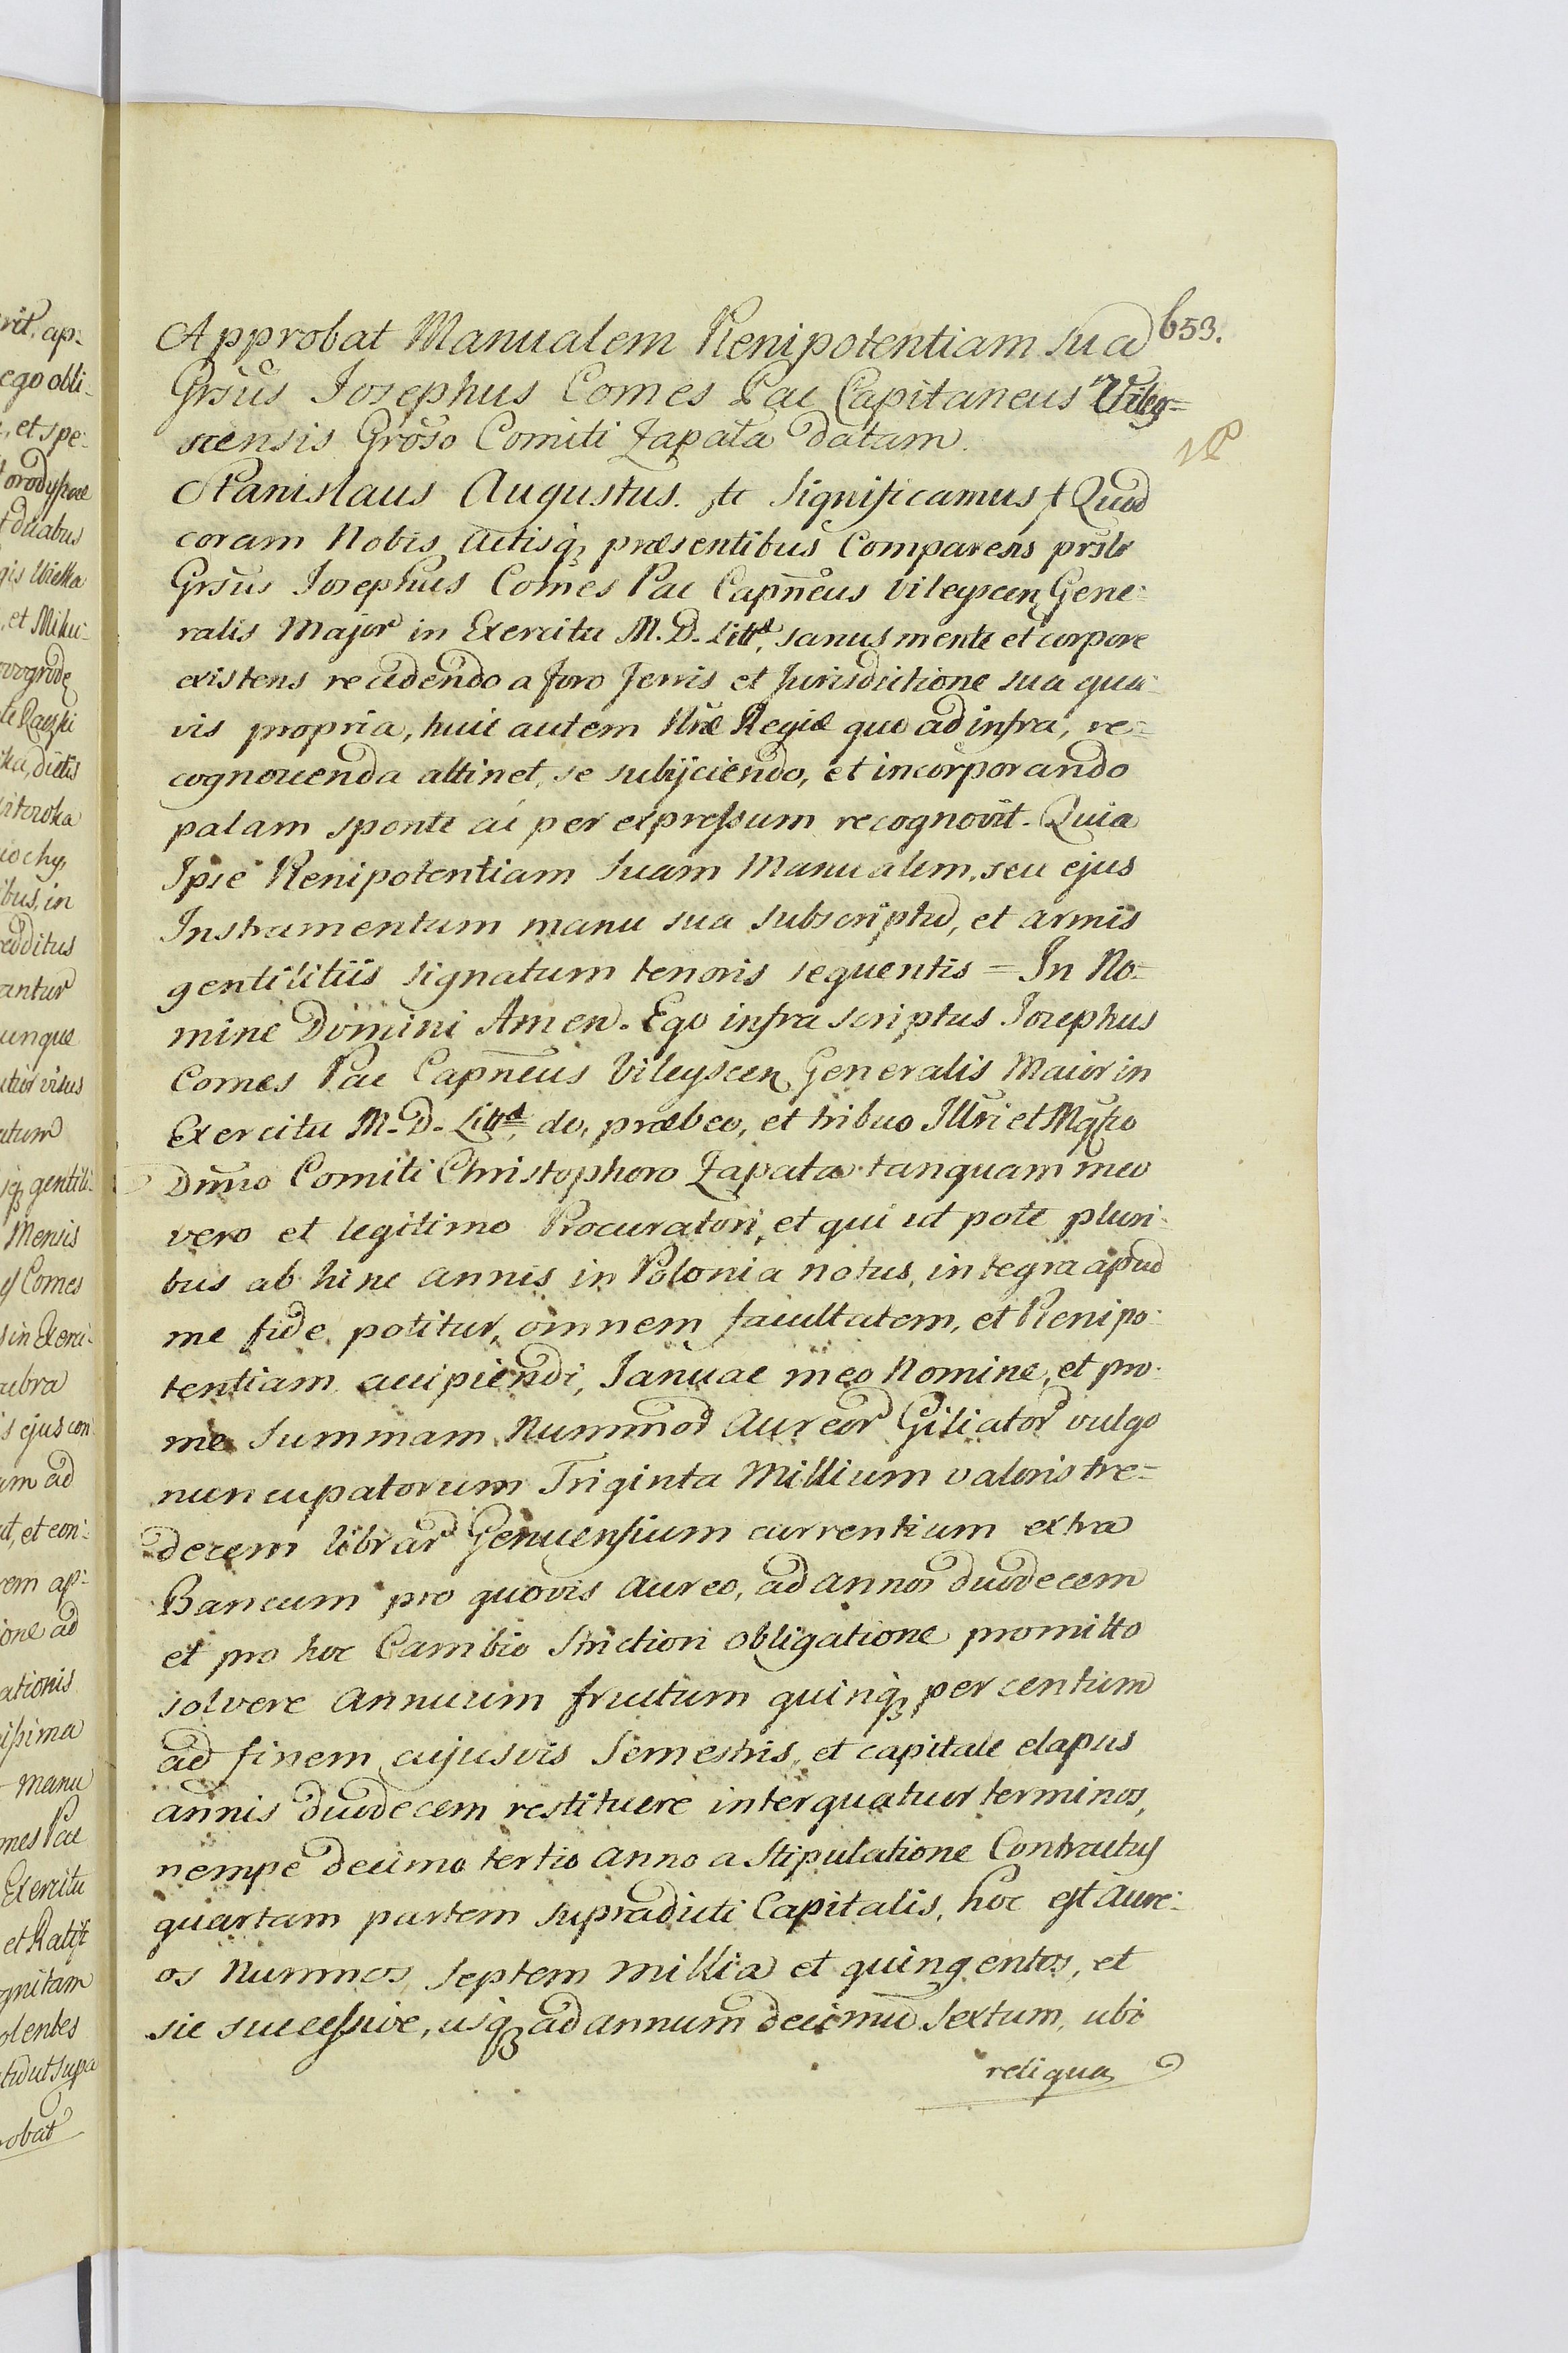 653.
Approbat Manualem Plenipotentiam sua
Grsus Josephus Comes Pac Capitaneus Viley=
scensis Groso Comiti Zapata datam.
Stanislaus Augustus. etc Significamus Quod
coram Nobis Actisq; præsentibus Comparens prslr
Grsus Josephus Comes Pac Capneus Vileyscen Gene-
ralis Major in Exercitu M. D. Littd, sanus mente et corpore
existens recedendo a foro Terris et Jurisdictione sua qua-
vis propria, huic autem Nræ Regiæ quo ad infra, re=
cognoscenda attinet, se subijciendo, et incorporando
palam sponte ac per expressum recognovit. Quia
Ipse Plenipotentiam Suam Manualem, seu ejus
Instrumentum manu sua subscriptu, et armis
gentilitiis signatum tenoris sequentis = In No=
mine Domini Amen. Ego infra scriptus Josephus
Comes Pac Capneus Vileyscen Generalis Maior in
Exercitu M. D. Littd, do, præbeo, et tribuo Illri et Mgco
Dnno Comiti Christophoro Zapata tanquam meo
vero et legitimo Procuratori, et qui ut pote pluri-
bus ab hinc annis in Polonia notus, integra apud
me fide potitur, omnem facultatem, et Plenipo-
tentiam accipiendi, Januae meo Nomine, et pro
me Summam Nummor Aureor Giliator vulgo
nuncupatorum Triginta Millium valoris tre=
decem librar Genuensium currentium extra
Bancum pro quovis aureo, ad annos duodecem
et pro hoc Cambio strictiori obligatione promitto
solvere annuum fructum quinq; per centum
ad finem cujusvis Semestris, et capitale elapsis
annis duodecem restituere inter quatuor terminos,
nempe decimo tertio anno a Stipulatione Contractus
quartam partem supradicti Capitalis, hoc est Aure-
os Nummos Septem millia et quingentos, et
sic successive, usq; ad annum decimu Sextum, ubi
reliqua